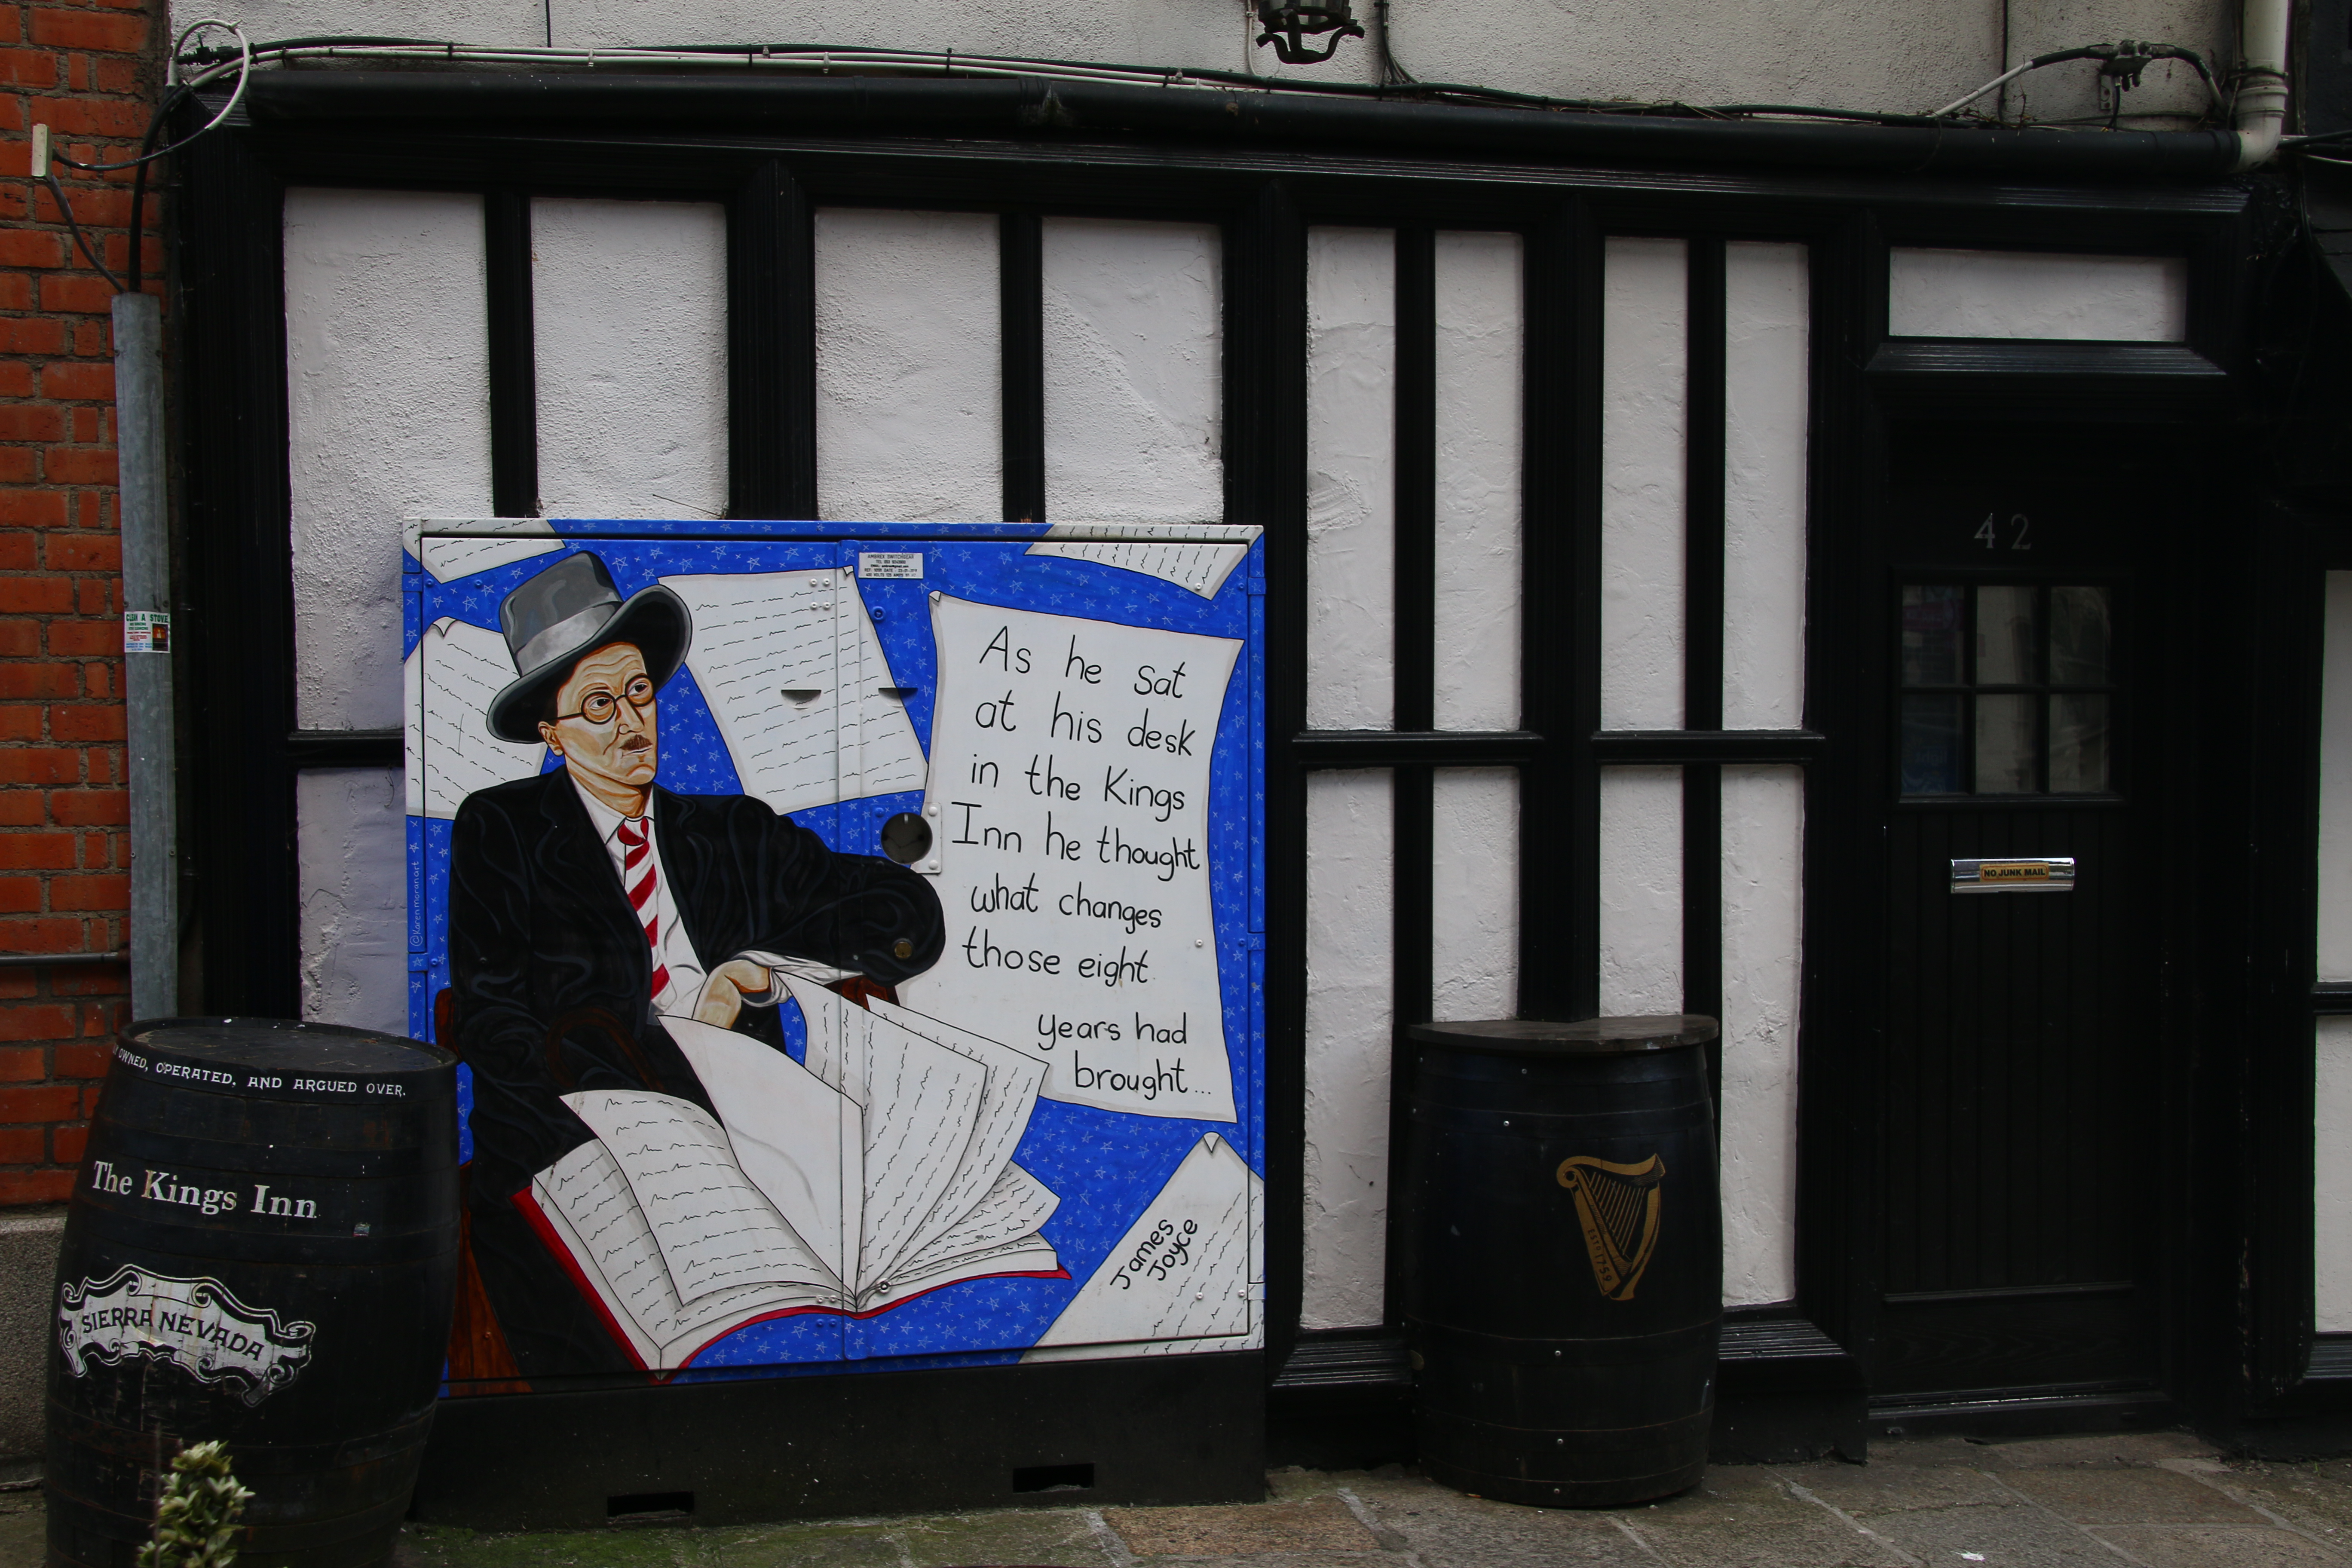 As he sat
at his desk
in the Kings
Inn he thought
what changes
those eight
years had
brought...
James
Joyce
@Karenmoranart
OWNED, OPERATED, AND ARGUED OVER.
The Kings Inn
SIERRA NEVADA
ESTD 1759
42
NO JUNK MAIL